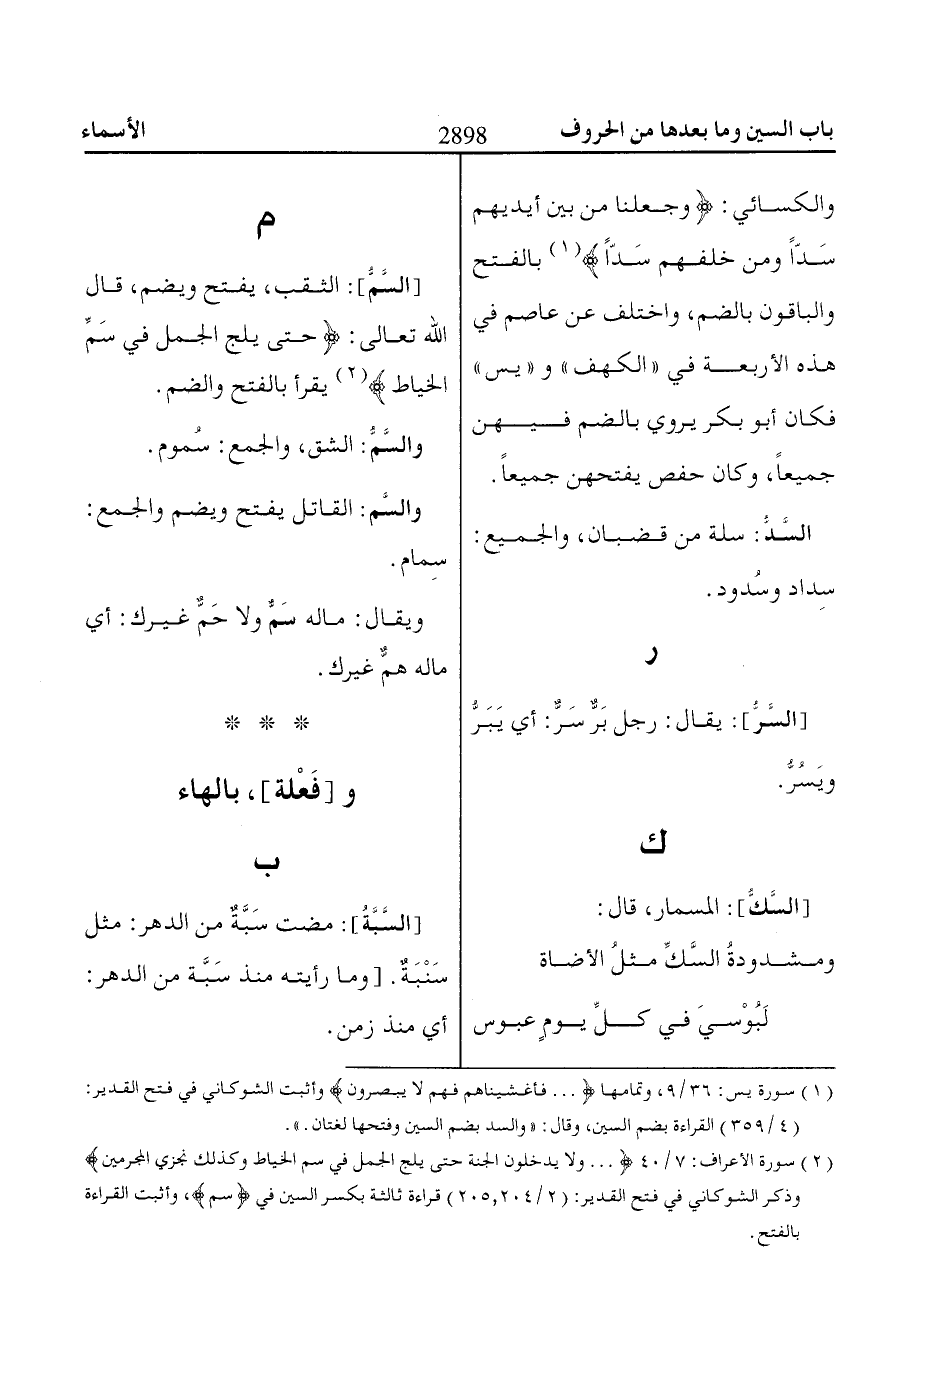 باب السين وما بعدها من الحروف
2898
الأسماء
والكسائي: ﴿ وجعلنا من بين أيديهم
سَدّاً ومن خلفهم سَدّاً ﴾(١) بالفتح
والباقون بالضم، واختلف عن عاصم في
هذه الأربعة في «الكهف» و «يس»
فكان أبو بكر يروي بالضم فيهن
جميعاً، وكان حفص يفتحهن جميعاً.
السَُّدُّ: سلة من قضبان، والجميع:
سِداد وسُدود.
ر
[السَُّرُّ]: يقال: رجل بَرٌّ سَرٌّ: أي يَبَرُّ
ويَسُرُّ.
ك
[السَّكُّ]: المسمار، قال:
ومشدودةُ السَّكِّ مثلُ الأضاة
لَبُوْسيَ في كلِّ يومٍ عبوس
م
[السَُّمُّ]: الثقب، يفتح ويضم، قال
الله تعالى: ﴿ حتى يلج الجمل في سَمِّ
الخياط ﴾(٢) يقرأ بالفتح والضم.
والسَُّمُّ: الشق، والجمع: سُموم.
والسَُّم: القاتل يفتح ويضم والجمع:
سِمام.
ويقال: ماله سَمٌّ ولا حَمٌّ غيرك: أي
ماله همٌّ غيرك.
* * *
و [فَعْلة]، بالهاء
ب
[السَُّبَّةُ]: مضت سَبَّةٌ من الدهر: مثل
سَنْبَةٌ. [وما رأيته منذ سَبَّة من الدهر:
أي منذ زمن.
(١) سورة يس: ٩/٣٦، وتمامها ﴿ ... فأغشيناهم فهم لا يبصرون ﴾ وأثبت الشوكاني في فتح القدير:
(٣٥٩/٤) القراءة بضم السين، وقال: «والسد بضم السين وفتحها لغتان.».
(٢) سورة الأعراف: ٤٠/٧ ﴿ ... ولا يدخلون الجنة حتى يلج الجمل في سم الخياط وكذلك نجزي المجرمين ﴾
وذكر الشوكاني في فتح القدير: (٢٠٥,٢٠٤/٢) قراءة ثالثة بكسر السين في ﴿سم﴾، وأثبت القراءة
بالفتح.